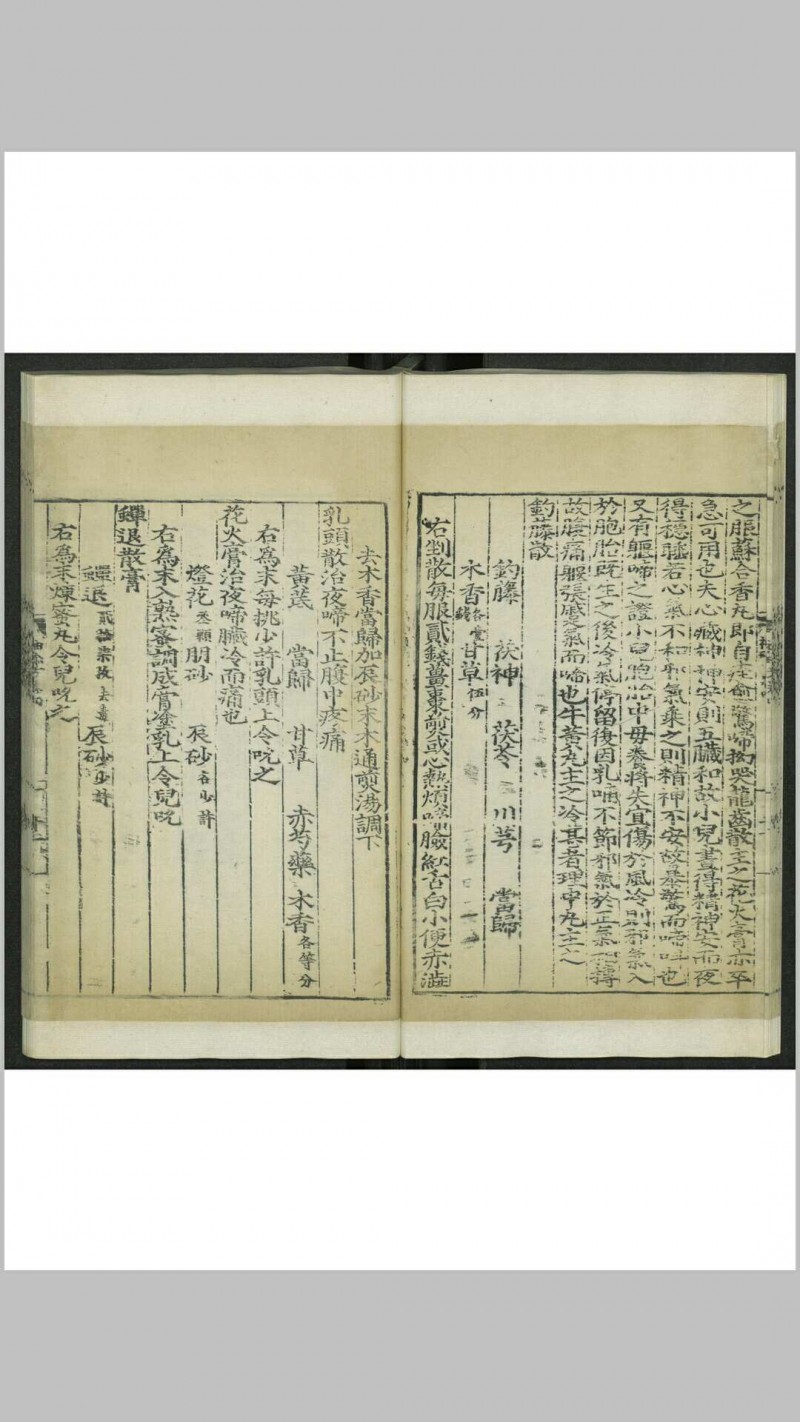 之服蘇合香丸即自
驚啼拗哭龍齒散主之花火膏亦平
急可用也夫心藏神神安則五臟和故小兒晝得精神安而夜
得穩睡若心氣不和邪氣乘之則精神不安故暴驚而啼叫也
又有軀啼之證小兒胞胎中母養將失宜傷於風冷則邪氣入
於胞胎旣生之後冷氣停留後因乳哺不節邪氣於正氣相搏
故腹痛軀張蹙氣而啼也牛黃丸主之冷甚者理中丸主之
釣藤散
釣藤 茯神 茯苓 川芎 當歸
木香各壹錢 甘草伍分
右剉散每服貳錢薑棗煎或心熱煩啼臉紅舌白小便赤澁
去木香當歸加辰砂末木通煎湯調下
乳頭散治夜啼不止腹中疼痛
黃茋 當歸 甘草 赤芍藥 木香各等分
右為末每挑少許乳頭上令吮之
花火膏治夜啼臟冷而痛也
燈花叁顆 朋砂 辰砂各少許
右為末入熟蜜調成膏塗乳上令兒吮
蟬退散膏
蟬退貳拾柒枚去毒 辰砂少許
右為末煉蜜丸令兒吮之